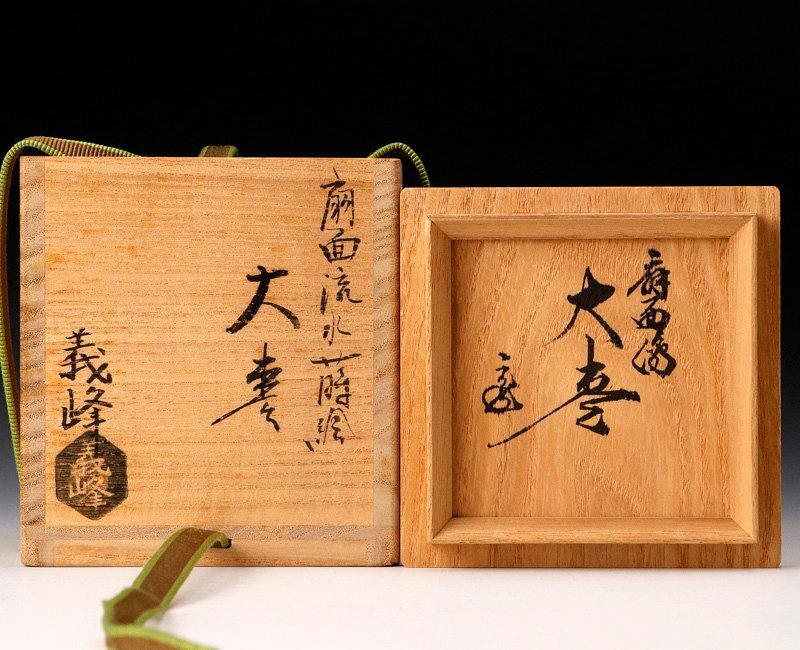 扇面流水蒔絵
大棗
義峰
義峰
扇面蒔
大棗